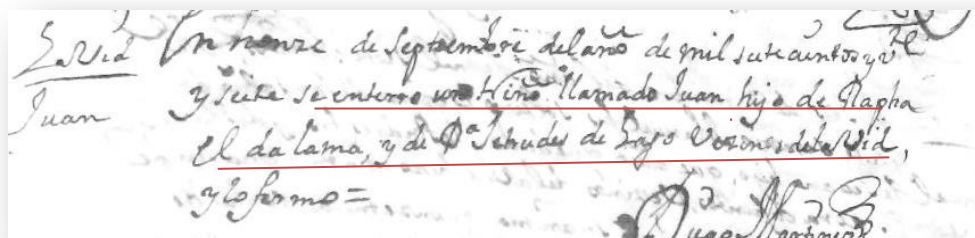 La Vid
Juan
En honze de septiembre del año de mil setecientos y vte
y siete se enterro un Niño llamado Juan hijo de Rapha
el da lama, y de Da Jetrudes de Lazo Vezinos de la Vid,
y lo firmo =
Diego Martinez